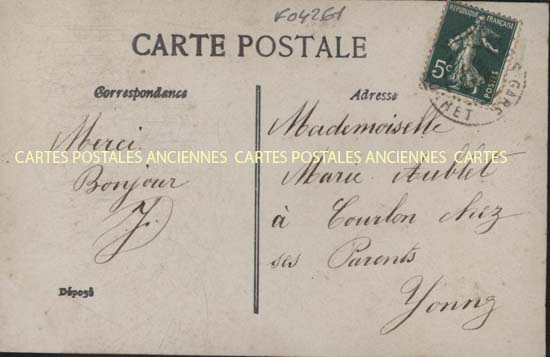 F04261
CARTE POSTALE
Correspondance
Adresse
5c
POSTES
GARE
Merci
Bonjour
J.
Mademoiselle
CARTES POSTALES ANCIENNES CARTES POSTALES ANCIENNES CARTES
Marie Aublet
à Courlon chez
ses Parents
Yonne
Déposé